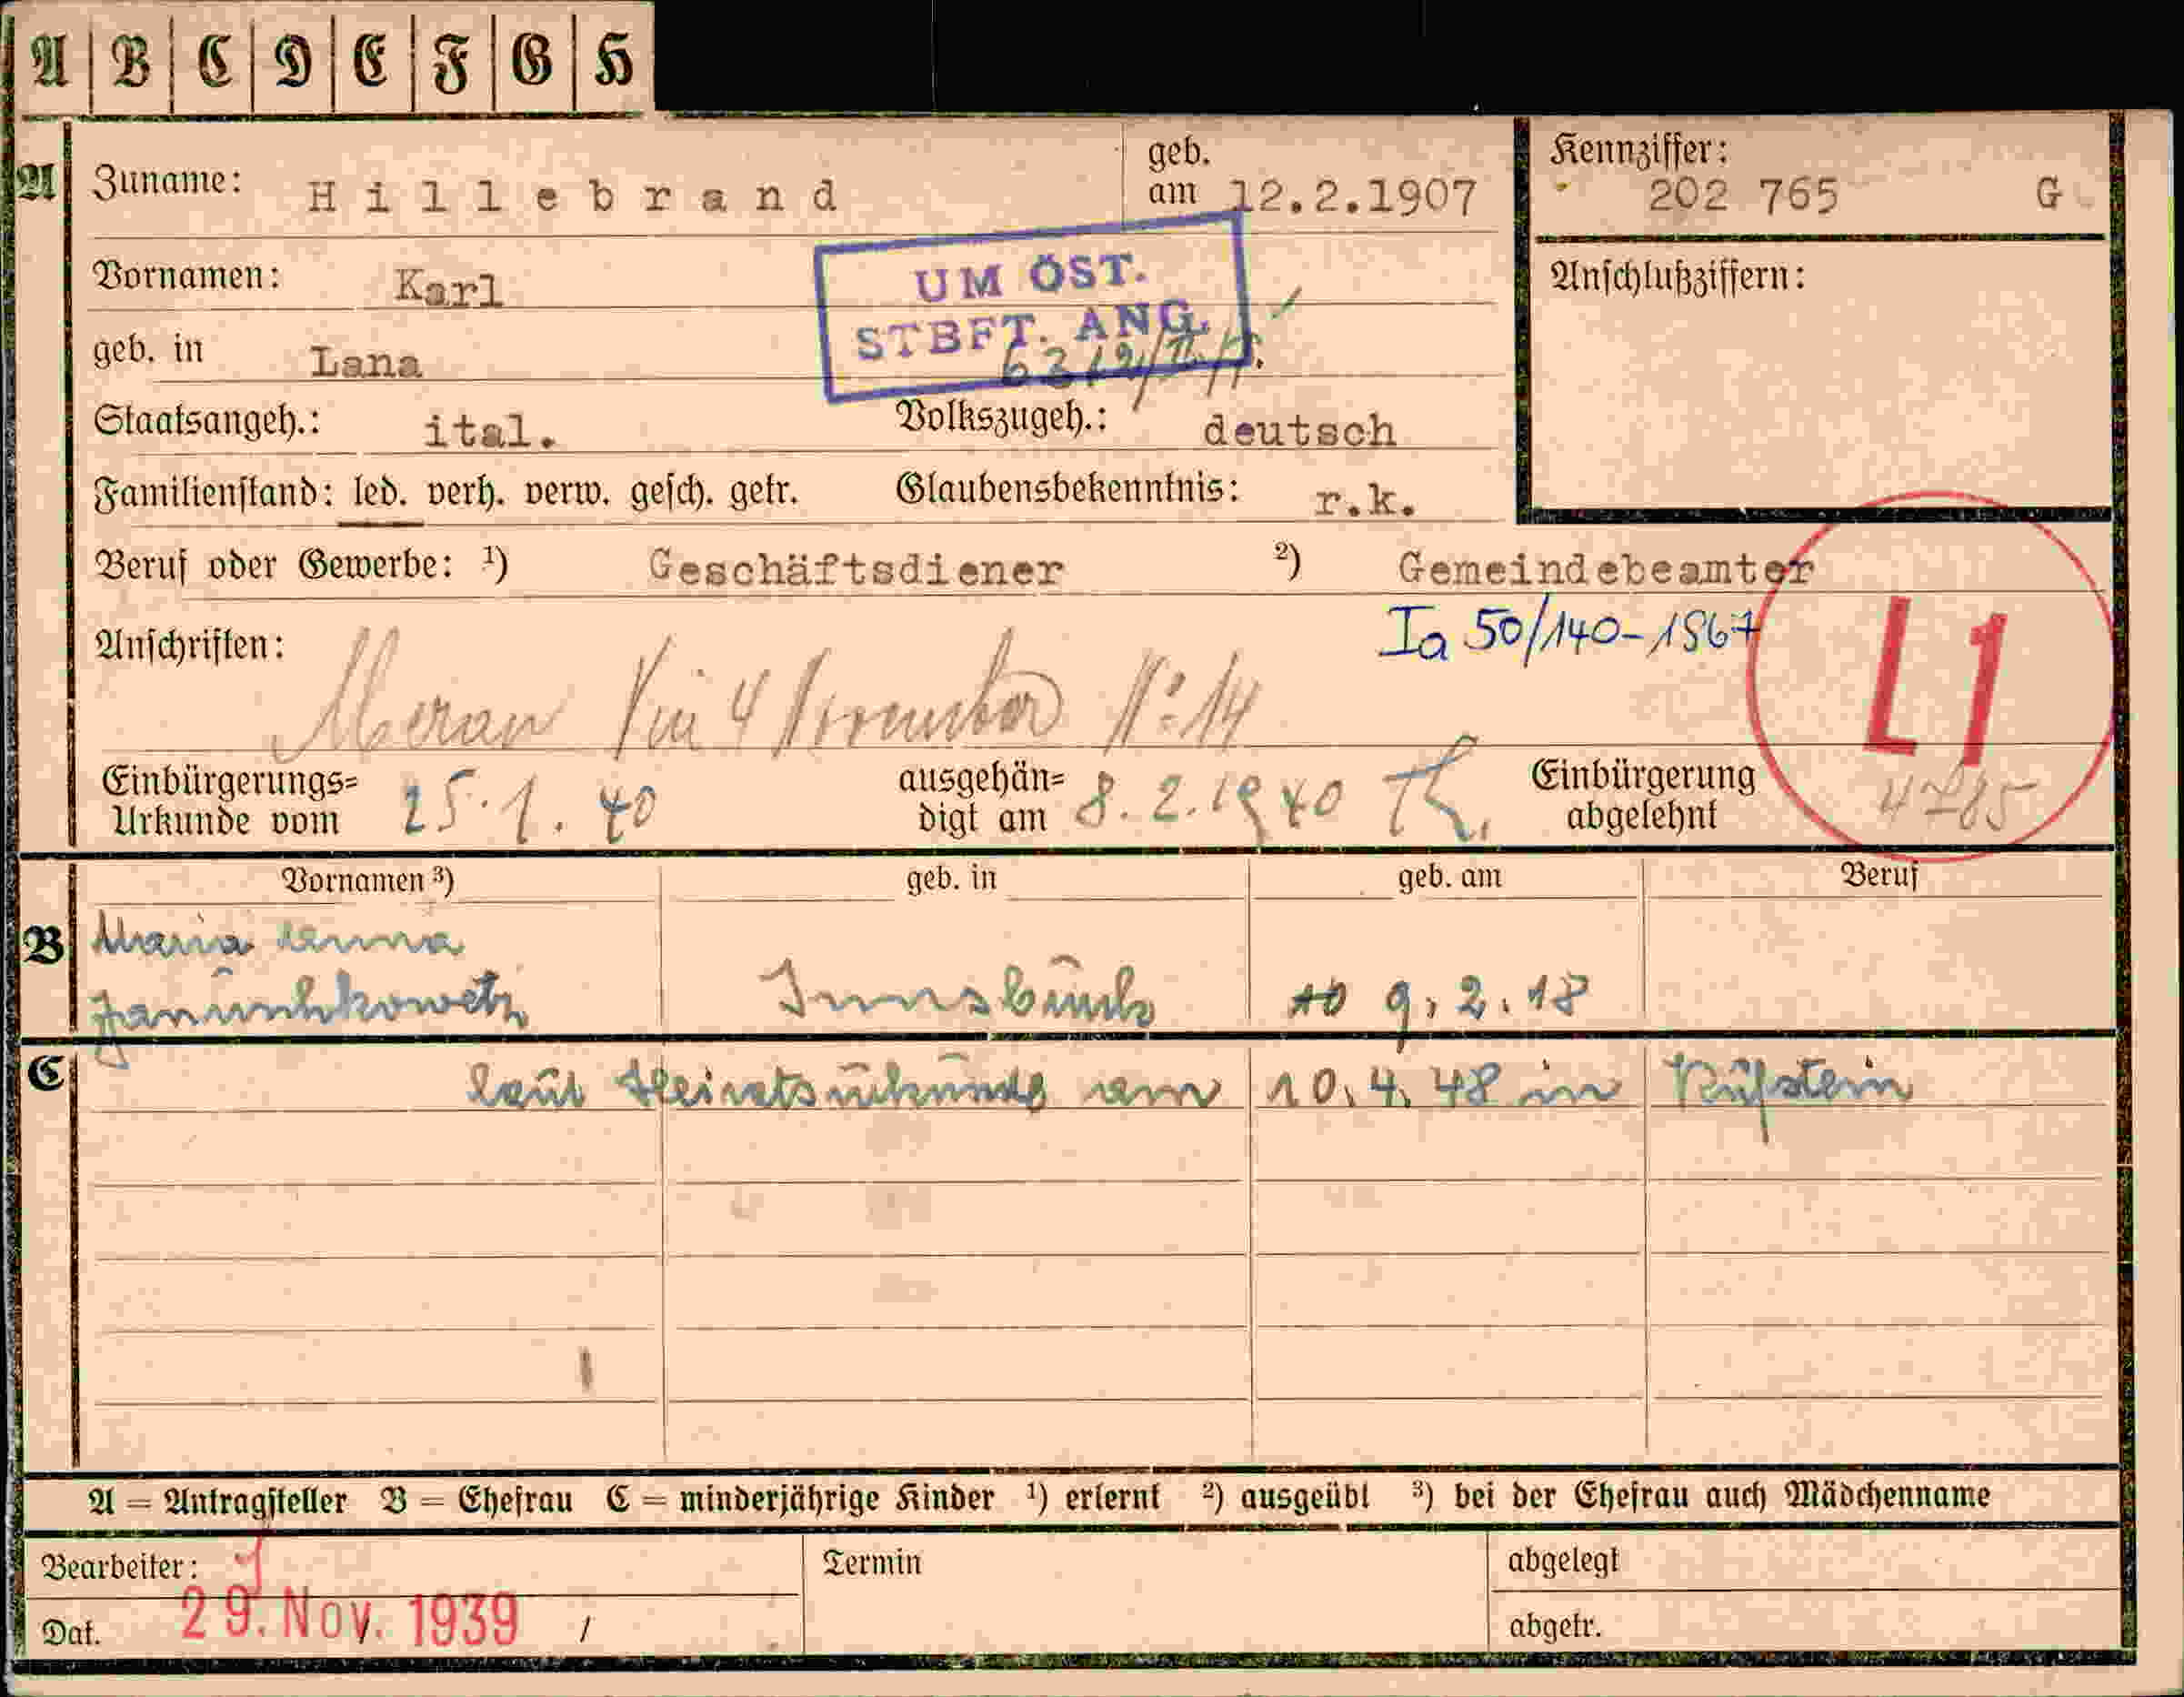 A B C D E F G H
A Zuname: Hillebrand geb. am 12.2.1907 Kennziffer: 202 765 G
Vornamen: Karl Anschlußziffern:
UM ÖST.
STBFT. ANG.
geb. in Lana
Staatsangeh.: ital. Volkszugeh.: deutsch
Familienstand: led. verh. verw. gesch. getr. Glaubensbekenntnis: r.k.
Beruf oder Gewerbe: 1) Geschäftsdiener 2) Gemeindebeamter
Anschriften: Ia 50/140-1867
L1
Meran Via 4 November No 14
Einbürgerungs= Urkunde vom 25.1.40 ausgehän= digt am 8.2.1940 Einbürgerung abgelehnt
Vornamen 3) geb. in geb. am Beruf
B Maria Anna
Januschkowetz Innsbruck 9.2.18
C laut Heiratsurkunde am 10.4.48 in Kufstein
A = Antragsteller B = Ehefrau C = minderjährige Kinder 1) erlernt 2) ausgeübt 3) bei der Ehefrau auch Mädchenname
Bearbeiter: Termin abgelegt
Dat. 29. Nov. 1939 / abgetr.